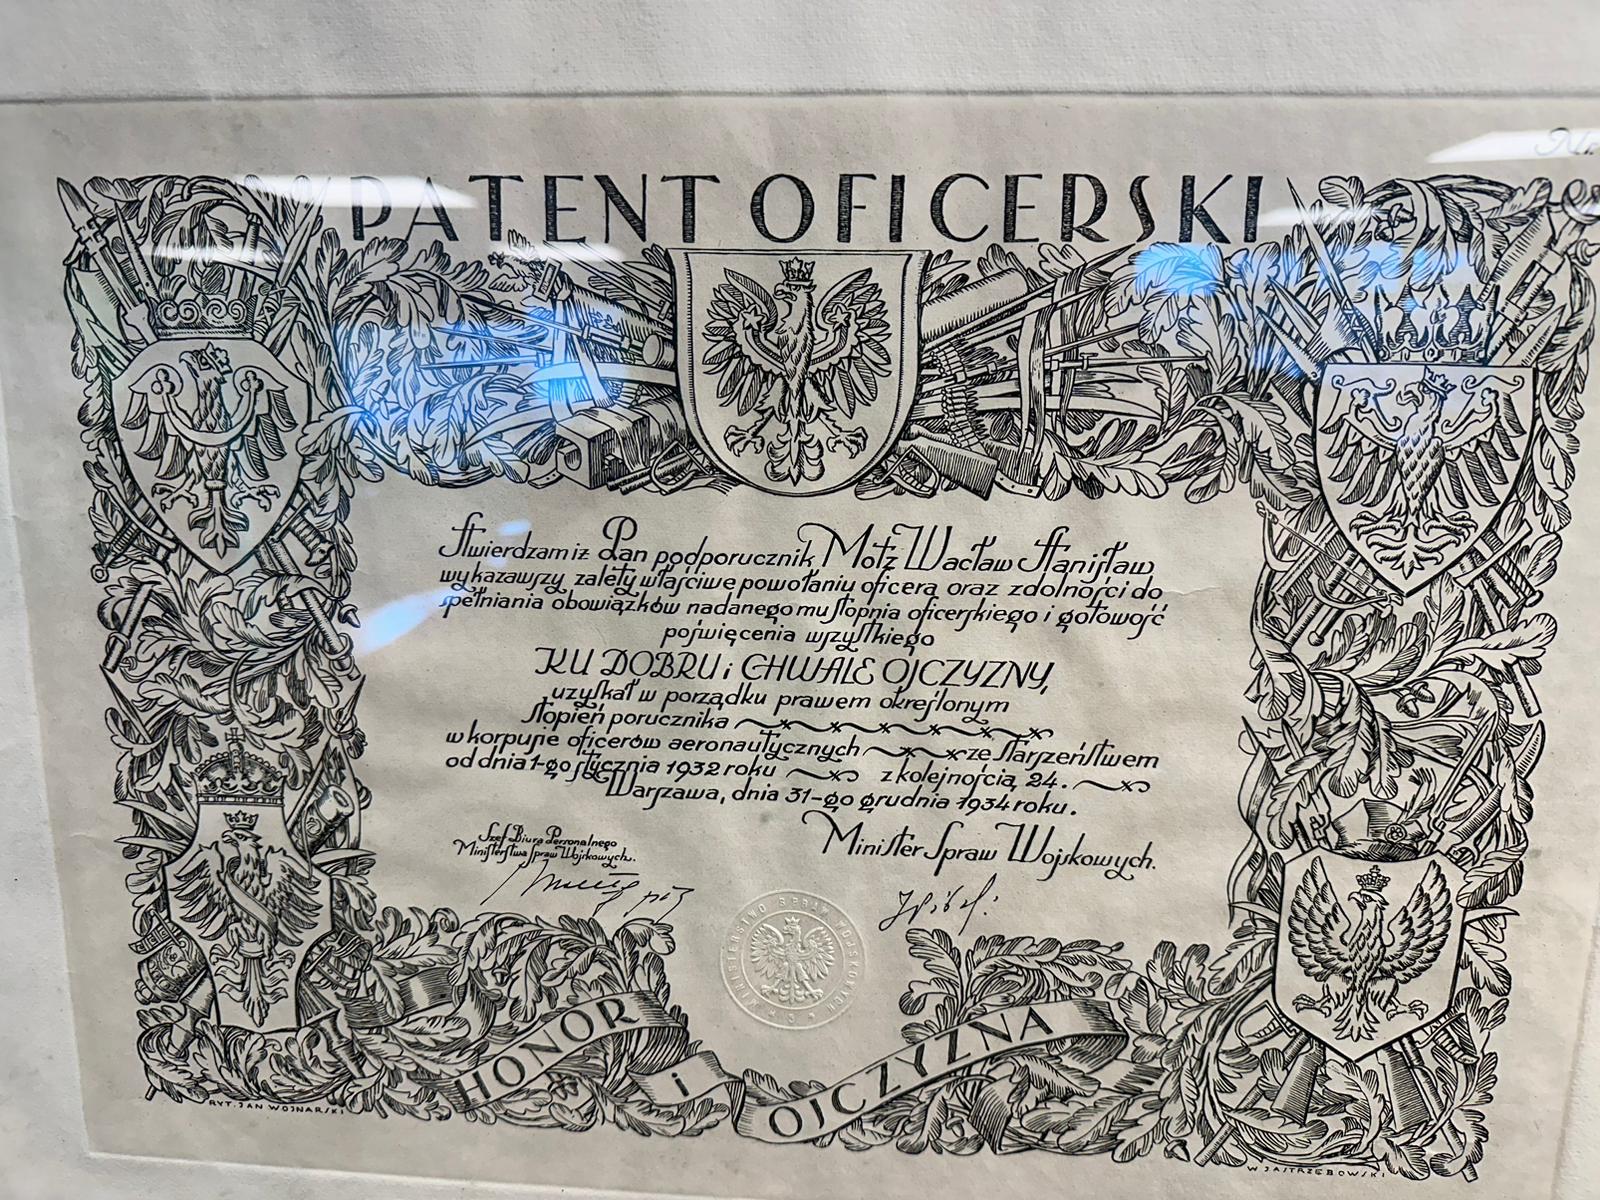 Nr.
PATENT OFICERSKI
Stwierdzam iż Pan podporucznik Motz Wacław Stanisław
wykazawszy zalety właściwe powołaniu oficera oraz zdolności do
spełniania obowiązków nadanego mu stopnia oficerskiego i gotowość
poświęcenia wszystkiego
KU DOBRU i CHWALE OJCZYZNY,
uzyskał w porządku prawem określonym
stopień porucznika
w korpusie oficerów aeronautycznych ze starszeństwem
od dnia 1-go stycznia 1932 roku z kolejnością 24.
Warszawa, dnia 31-go grudnia 1934 roku.
Szef Biura Personalnego
Ministerstwa Spraw Wojskowych.
Minister Spraw Wojskowych.
MINISTERSTWO SPRAW WOJSKOWYCH
HONOR i OJCZYZNA
RYT. JAN WOJNARSKI
W JASTRZĘBOWSKI